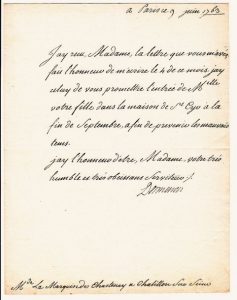 a Paris ce 9 juin 1763
J'ay reçu, Madame, la lettre que vous m'avés
fait l'honneur de m'ecrire le 4 de ce mois, j'ay
celuy de vous promettre l'entrée de Mlle
votre fille dans la maison de St Cyr à la
fin de Septembre, afin de prevenir les mauvais
tems.
j'ay l'honneur d'etre, Madame, votre très
humble et très obeissant Serviteur ./.
Mde La Marquise de Chastenay a Chatillon Sur Seine